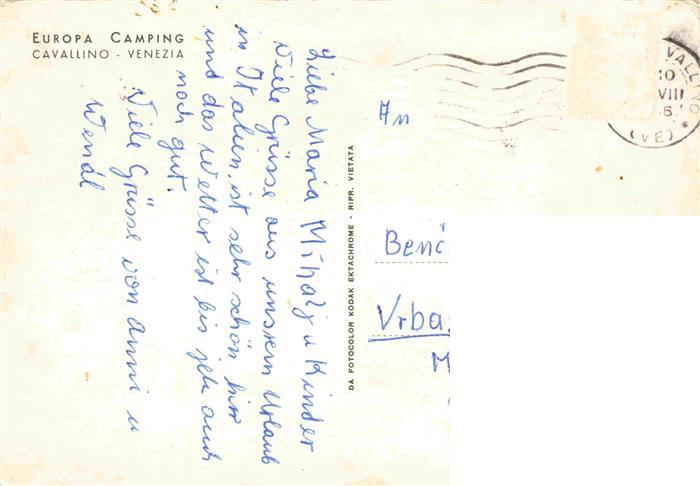 EUROPA CAMPING
CAVALLINO - VENEZIA
Liebe Maria Mihalj u Kinder
Viele Grüsse aus unsren Urlaub
in Italien. ist sehr schön hir
und das Wetter ist bis jetz auch
noch gut.
Viele Grüsse von Anni u
Wendl
DA FOTOCOLOR KODAK EKTACHROME - RIPR. VIETATA
VALLINO
10
VIII
6
(VE)
An
Benč
Vrba
M